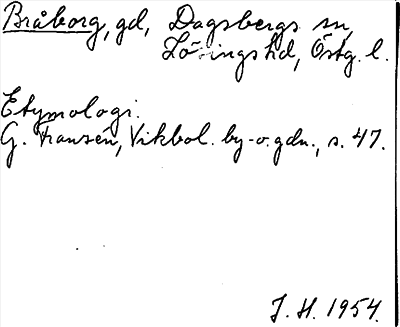 Bråborg, gd, Dagsbergs sn,
Lösings hd, Östg. l.
Etymologi.
G. Franzén, Vikbol. by- o. gdn., s. 47.
J. H. 1954.